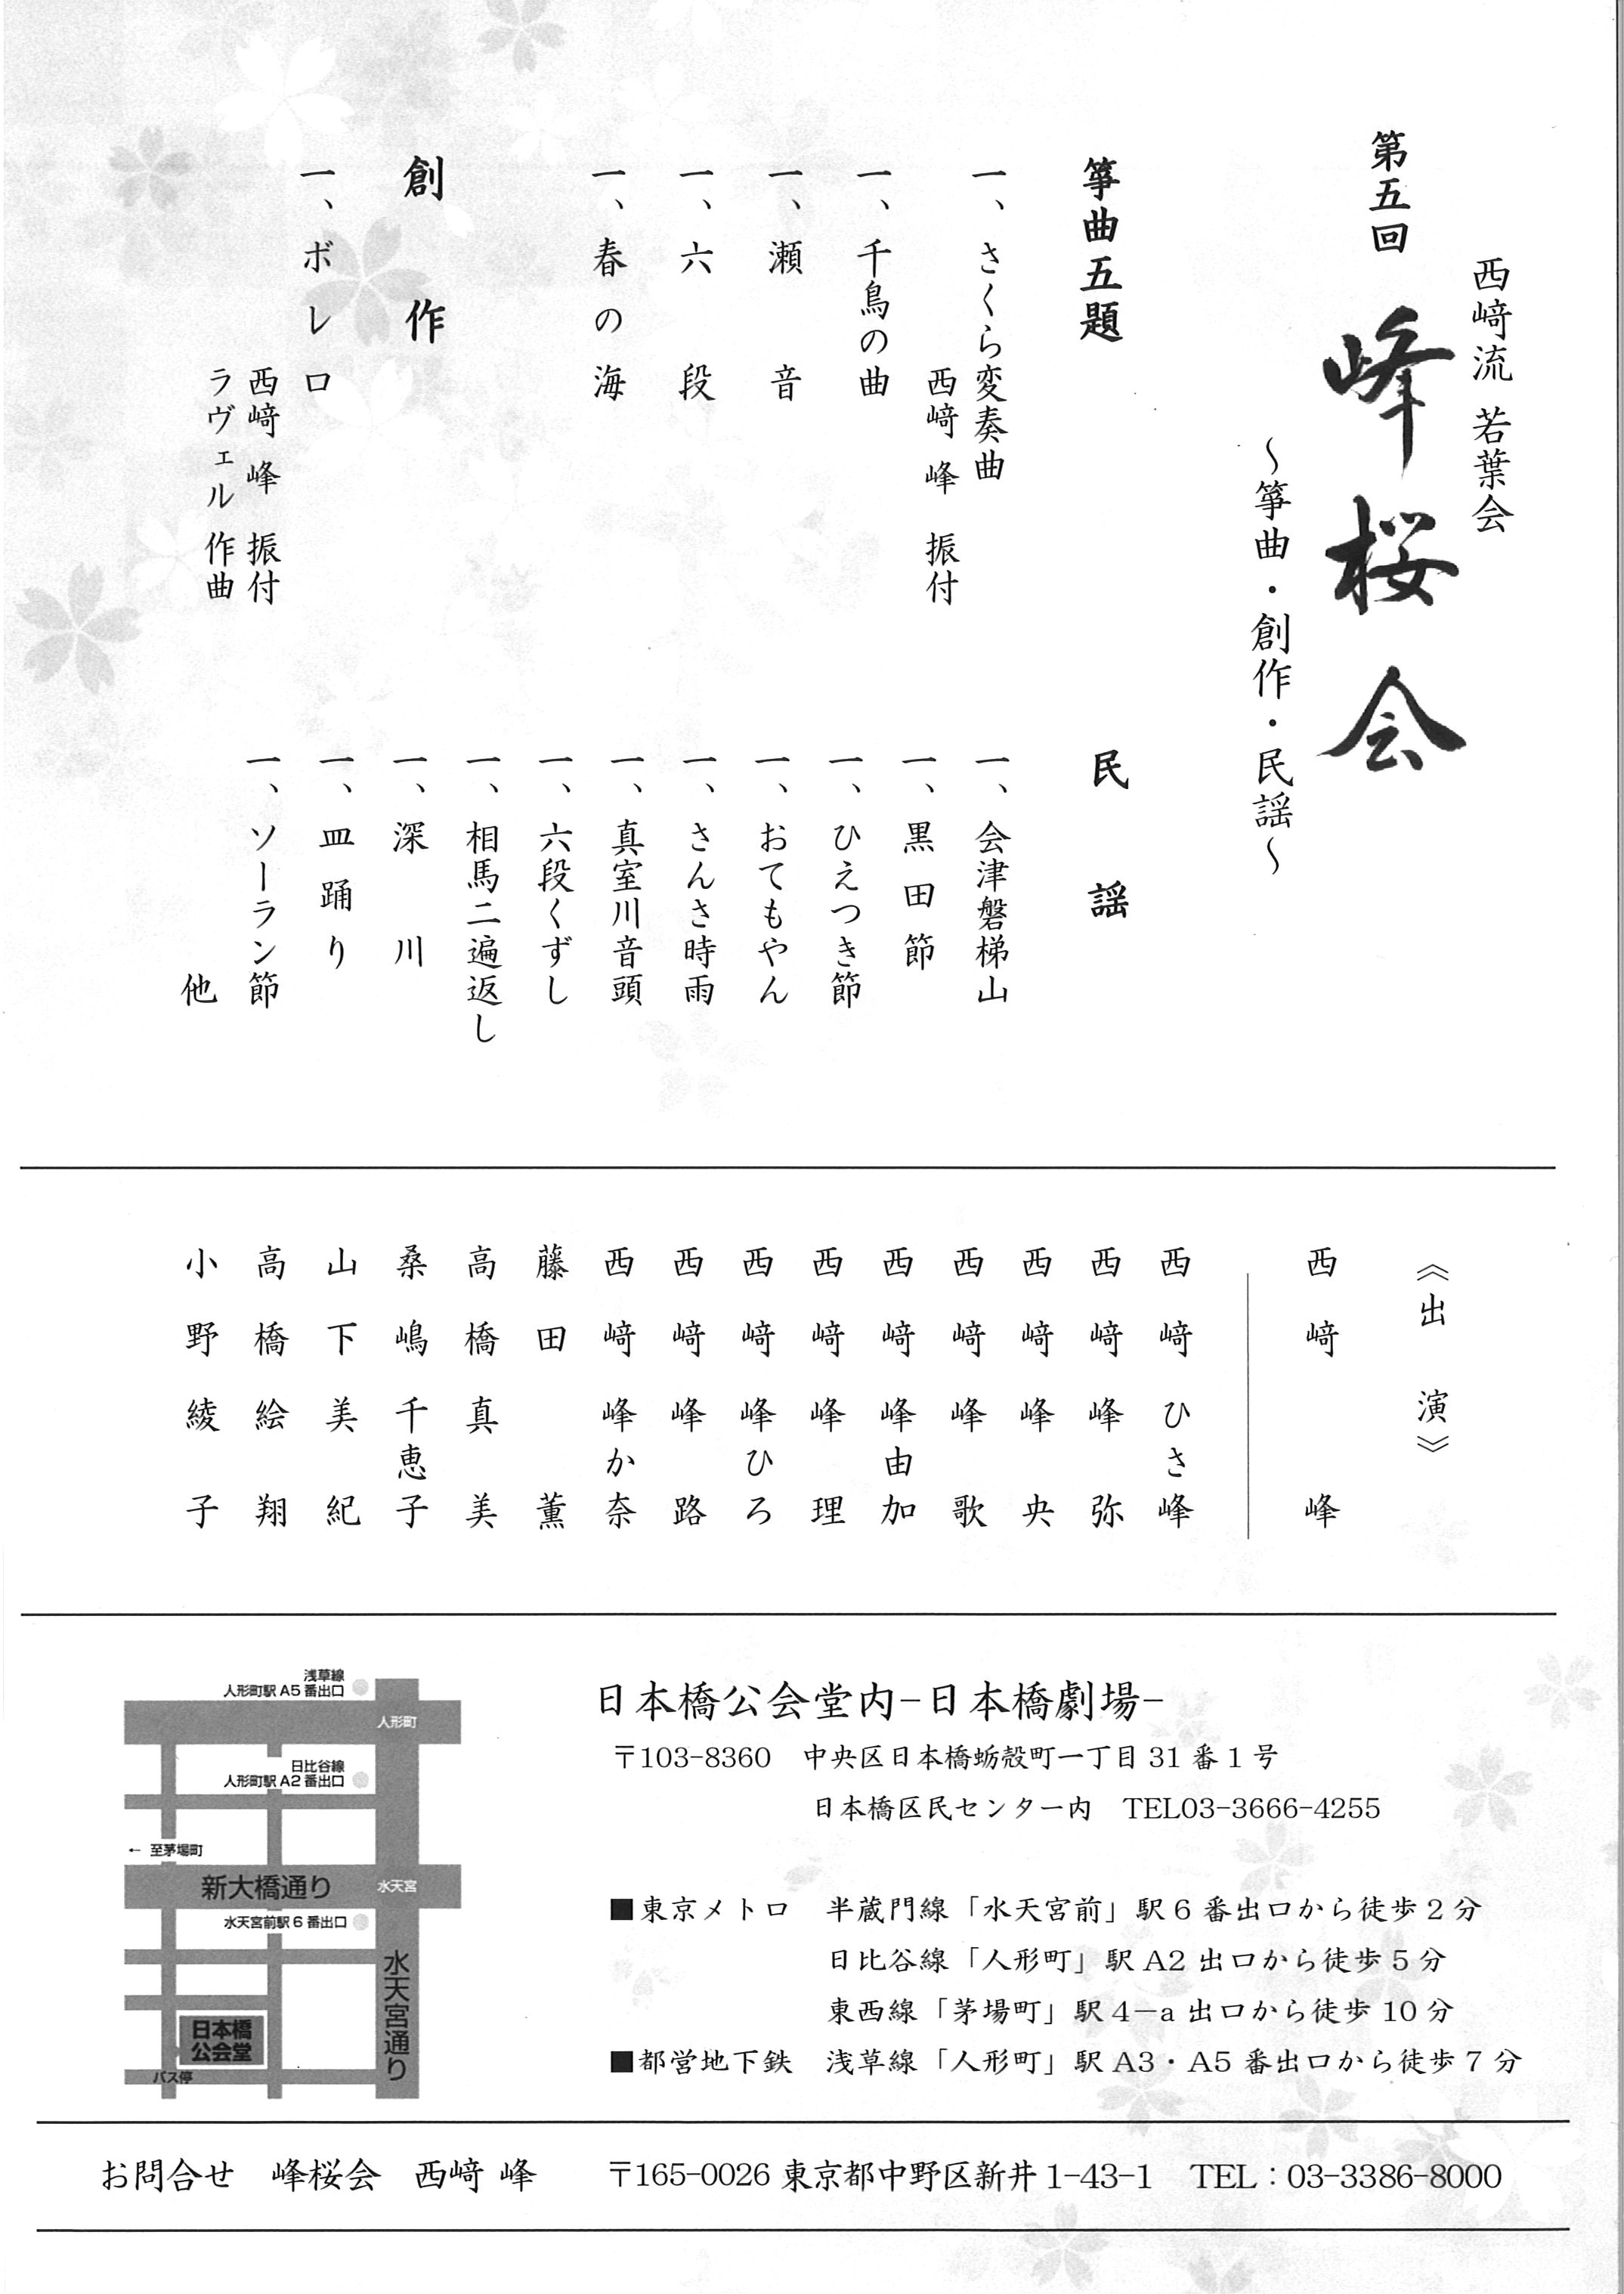 西﨑流 若葉会
第五回 峰桜会
～箏曲・創作・民謡～
箏曲五題
一、さくら変奏曲
西﨑 峰 振付
一、千鳥の曲
一、瀬音
一、六段
一、春の海
創作
一、ボレロ
西﨑 峰 振付
ラヴェル 作曲
民謡
一、会津磐梯山
一、黒田節
一、ひえつき節
一、おてもやん
一、さんさ時雨
一、真室川音頭
一、六段くずし
一、相馬二遍返し
一、深川
一、皿踊り
一、ソーラン節
他
《出演》
西﨑峰
西﨑ひさ峰
西﨑峰弥
西﨑峰央
西﨑峰歌
西﨑峰由加
西﨑峰理
西﨑峰ひろ
西﨑峰路
西﨑峰かな奈
藤田薫
高橋真美
桑嶋千恵子
山下美紀
高橋絵翔
小野綾子
日本橋公会堂内−日本橋劇場−
〒103-8360 中央区日本橋蛎殻町一丁目31番1号
日本橋区民センター内 TEL03-3666-4255
■東京メトロ 半蔵門線「水天宮前」駅6番出口から徒歩2分
日比谷線「人形町」駅A2出口から徒歩5分
東西線「茅場町」駅4－a出口から徒歩10分
■都営地下鉄 浅草線「人形町」駅A3・A5番出口から徒歩7分
浅草線
人形町駅A5番出口
人形町
日比谷線
人形町駅A2番出口
← 至茅場町
新大橋通り
水天宮
水天宮前駅6番出口
水天宮通り
日本橋
公会堂
バス停
お問合せ 峰桜会 西﨑 峰 〒165-0026 東京都中野区新井1-43-1 TEL：03-3386-8000